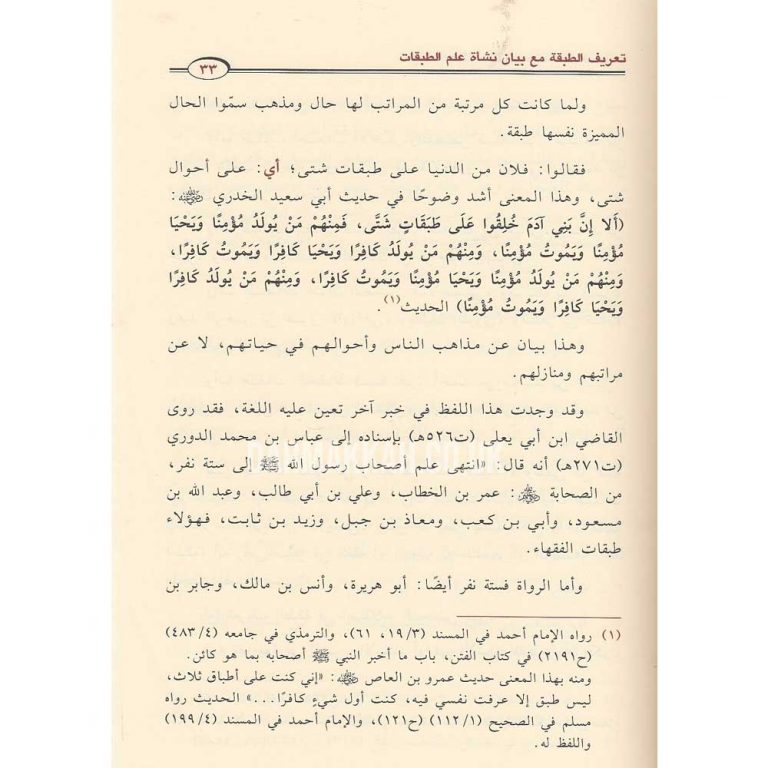 تعريف الطبقة مع بيان نشأة علم الطبقات
٣٣
ولما كانت كل مرتبة من المراتب لها حال ومذهب سمّوا الحال
المميزة نفسها طبقة.
فقالوا: فلان من الدنيا على طبقات شتى؛ أي: على أحوال
شتى، وهذا المعنى أشد وضوحًا في حديث أبي سعيد الخدري رضي الله عنه:
(أَلا إِنَّ بَنِي آدَمَ خُلِقُوا عَلَى طَبَقَاتٍ شَتَّى، فَمِنْهُمْ مَنْ يُولَدُ مُؤْمِنًا وَيَحْيَا
مُؤْمِنًا وَيَمُوتُ مُؤْمِنًا، وَمِنْهُمْ مَنْ يُولَدُ كَافِرًا وَيَحْيَا كَافِرًا وَيَمُوتُ كَافِرًا،
وَمِنْهُمْ مَنْ يُولَدُ مُؤْمِنًا وَيَحْيَا مُؤْمِنًا وَيَمُوتُ كَافِرًا، وَمِنْهُمْ مَنْ يُولَدُ كَافِرًا
وَيَحْيَا كَافِرًا وَيَمُوتُ مُؤْمِنًا) الحديث(١).
وهذا بيان عن مذاهب الناس وأحوالهم في حياتهم، لا عن
مراتبهم ومنازلهم.
وقد وجدت هذا اللفظ في خبر آخر تعين عليه اللغة، فقد روى
القاضي ابن أبي يعلى (ت٥٢٦هـ) بإسناده إلى عباس بن محمد الدوري
(ت٢٧١هـ) أنه قال: «انتهى علم أصحاب رسول الله ﷺ إلى ستة نفر،
من الصحابة رضي الله عنهم: عمر بن الخطاب، وعلي بن أبي طالب، وعبد الله بن
مسعود، وأبي بن كعب، ومعاذ بن جبل، وزيد بن ثابت، فهؤلاء
طبقات الفقهاء.
وأما الرواة فستة نفر أيضًا: أبو هريرة، وأنس بن مالك، وجابر بن
(١) رواه الإمام أحمد في المسند (١٩/٣، ٦١)، والترمذي في جامعه (٤٨٣/٤)
(ح٢١٩١) في كتاب الفتن، باب ما أخبر النبي ﷺ أصحابه بما هو كائن.
ومنه بهذا المعنى حديث عمرو بن العاص رضي الله عنه: «إني كنت على أطباق ثلاث،
ليس طبق إلا عرفت نفسي فيه، كنت أول شيءٍ كافرًا...» الحديث رواه
مسلم في الصحيح (١١٢/١) (ح١٢١)، والإمام أحمد في المسند (١٩٩/٤)
واللفظ له.